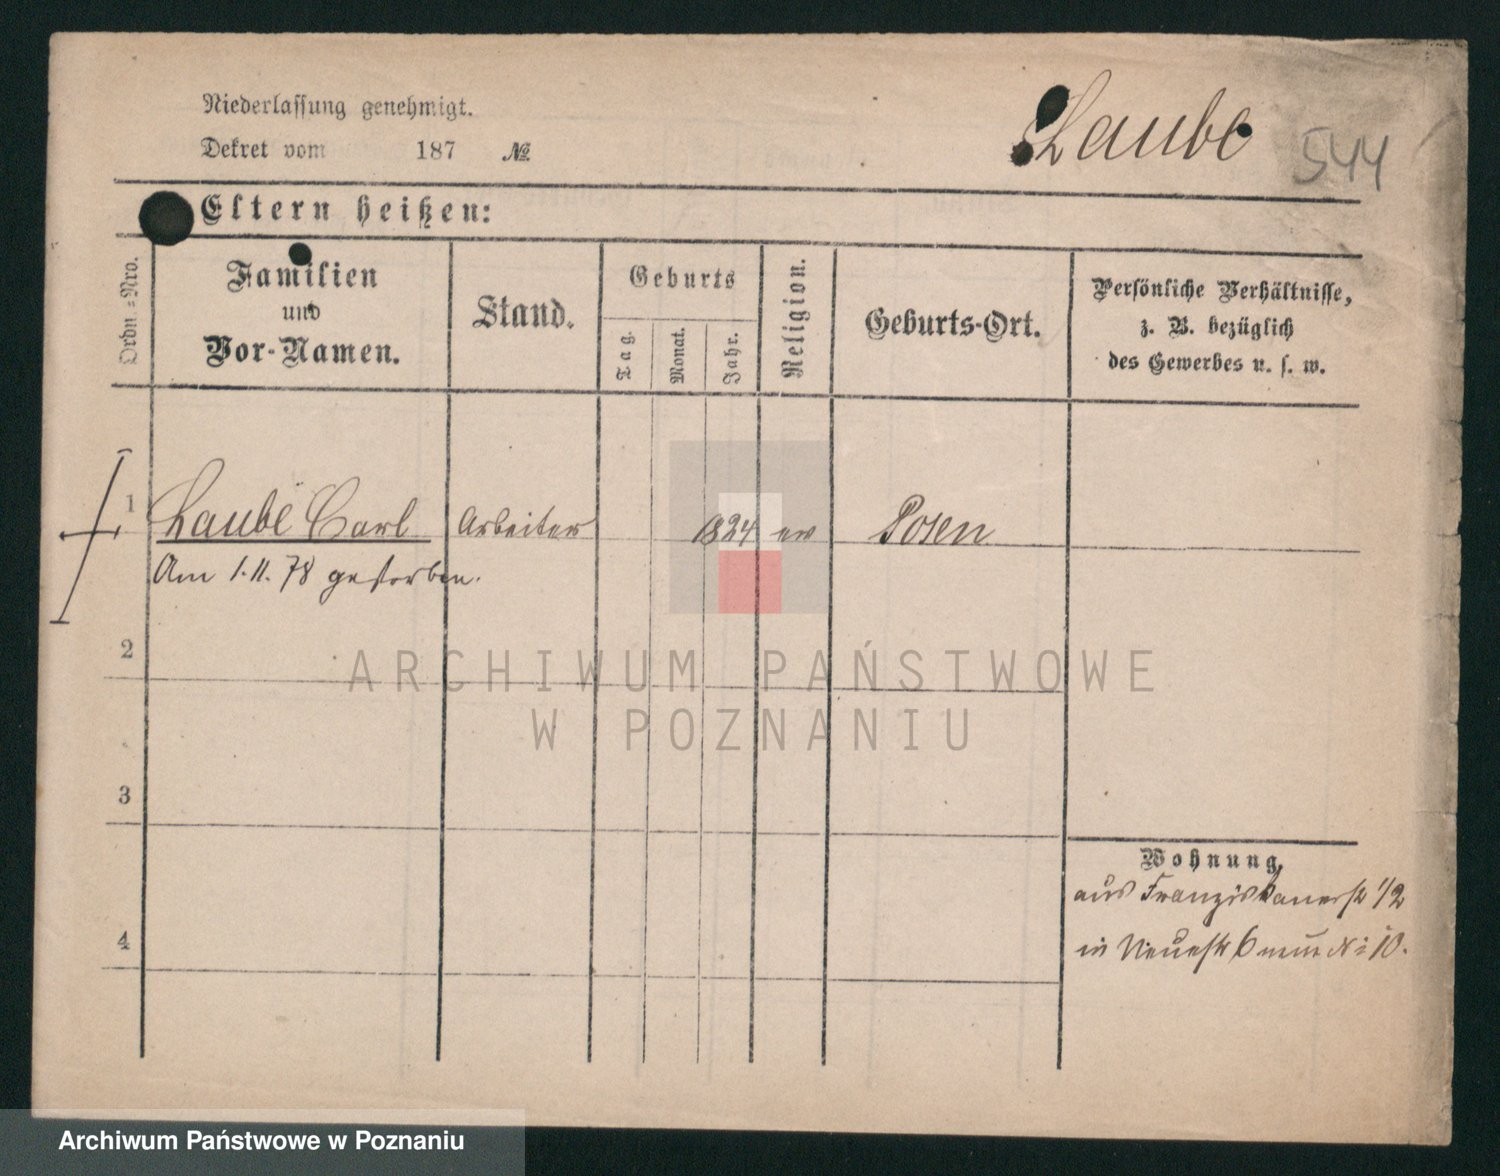 Niederlassung genehmigt.
Dekret vom 187 №
Laube 544
Eltern heißen:
Ordn.-Nro.
Familien
und
Vor-Namen.
Stand.
Geburts
Tag.
Monat.
Jahr.
Religion.
Geburts-Ort.
Persönliche Verhältnisse,
z. B. bezüglich
des Gewerbes u. s. w.
1 Laube Carl Arbeiter 1824 ev Posen
Am 1.11.78 gestorben.
2
ARCHIWUM PAŃSTWOWE
W POZNANIU
3
Wohnung.
aus Franziskanerstr 1/2
4
in Neuestr 6 10.
Archiwum Państwowe w Poznaniu